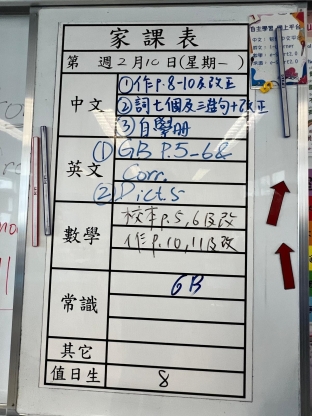 家課表
第 週2月10日(星期一)
中文 ①作p.8-10及改正
②詞七個及三造句+改正
③自學冊
英文 ①GB P.5-6&
Corr.
②Dict.5
數學 校本p.5,6及改
作p.10,11及改
常識 GB
其它
值日生 8